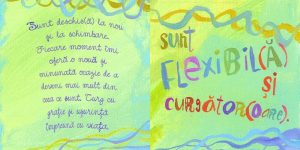 Sunt deschis(ă) la nou
și la schimbare.
Fiecare moment îmi
oferă o nouă și
minunată ocazie de a
deveni mai mult din
ceea ce sunt. Curg cu
grație și ușurință
împreună cu viața.
SUNT
FLEXIBIL(Ă)
ȘI
CURGĂTOR(OARE).